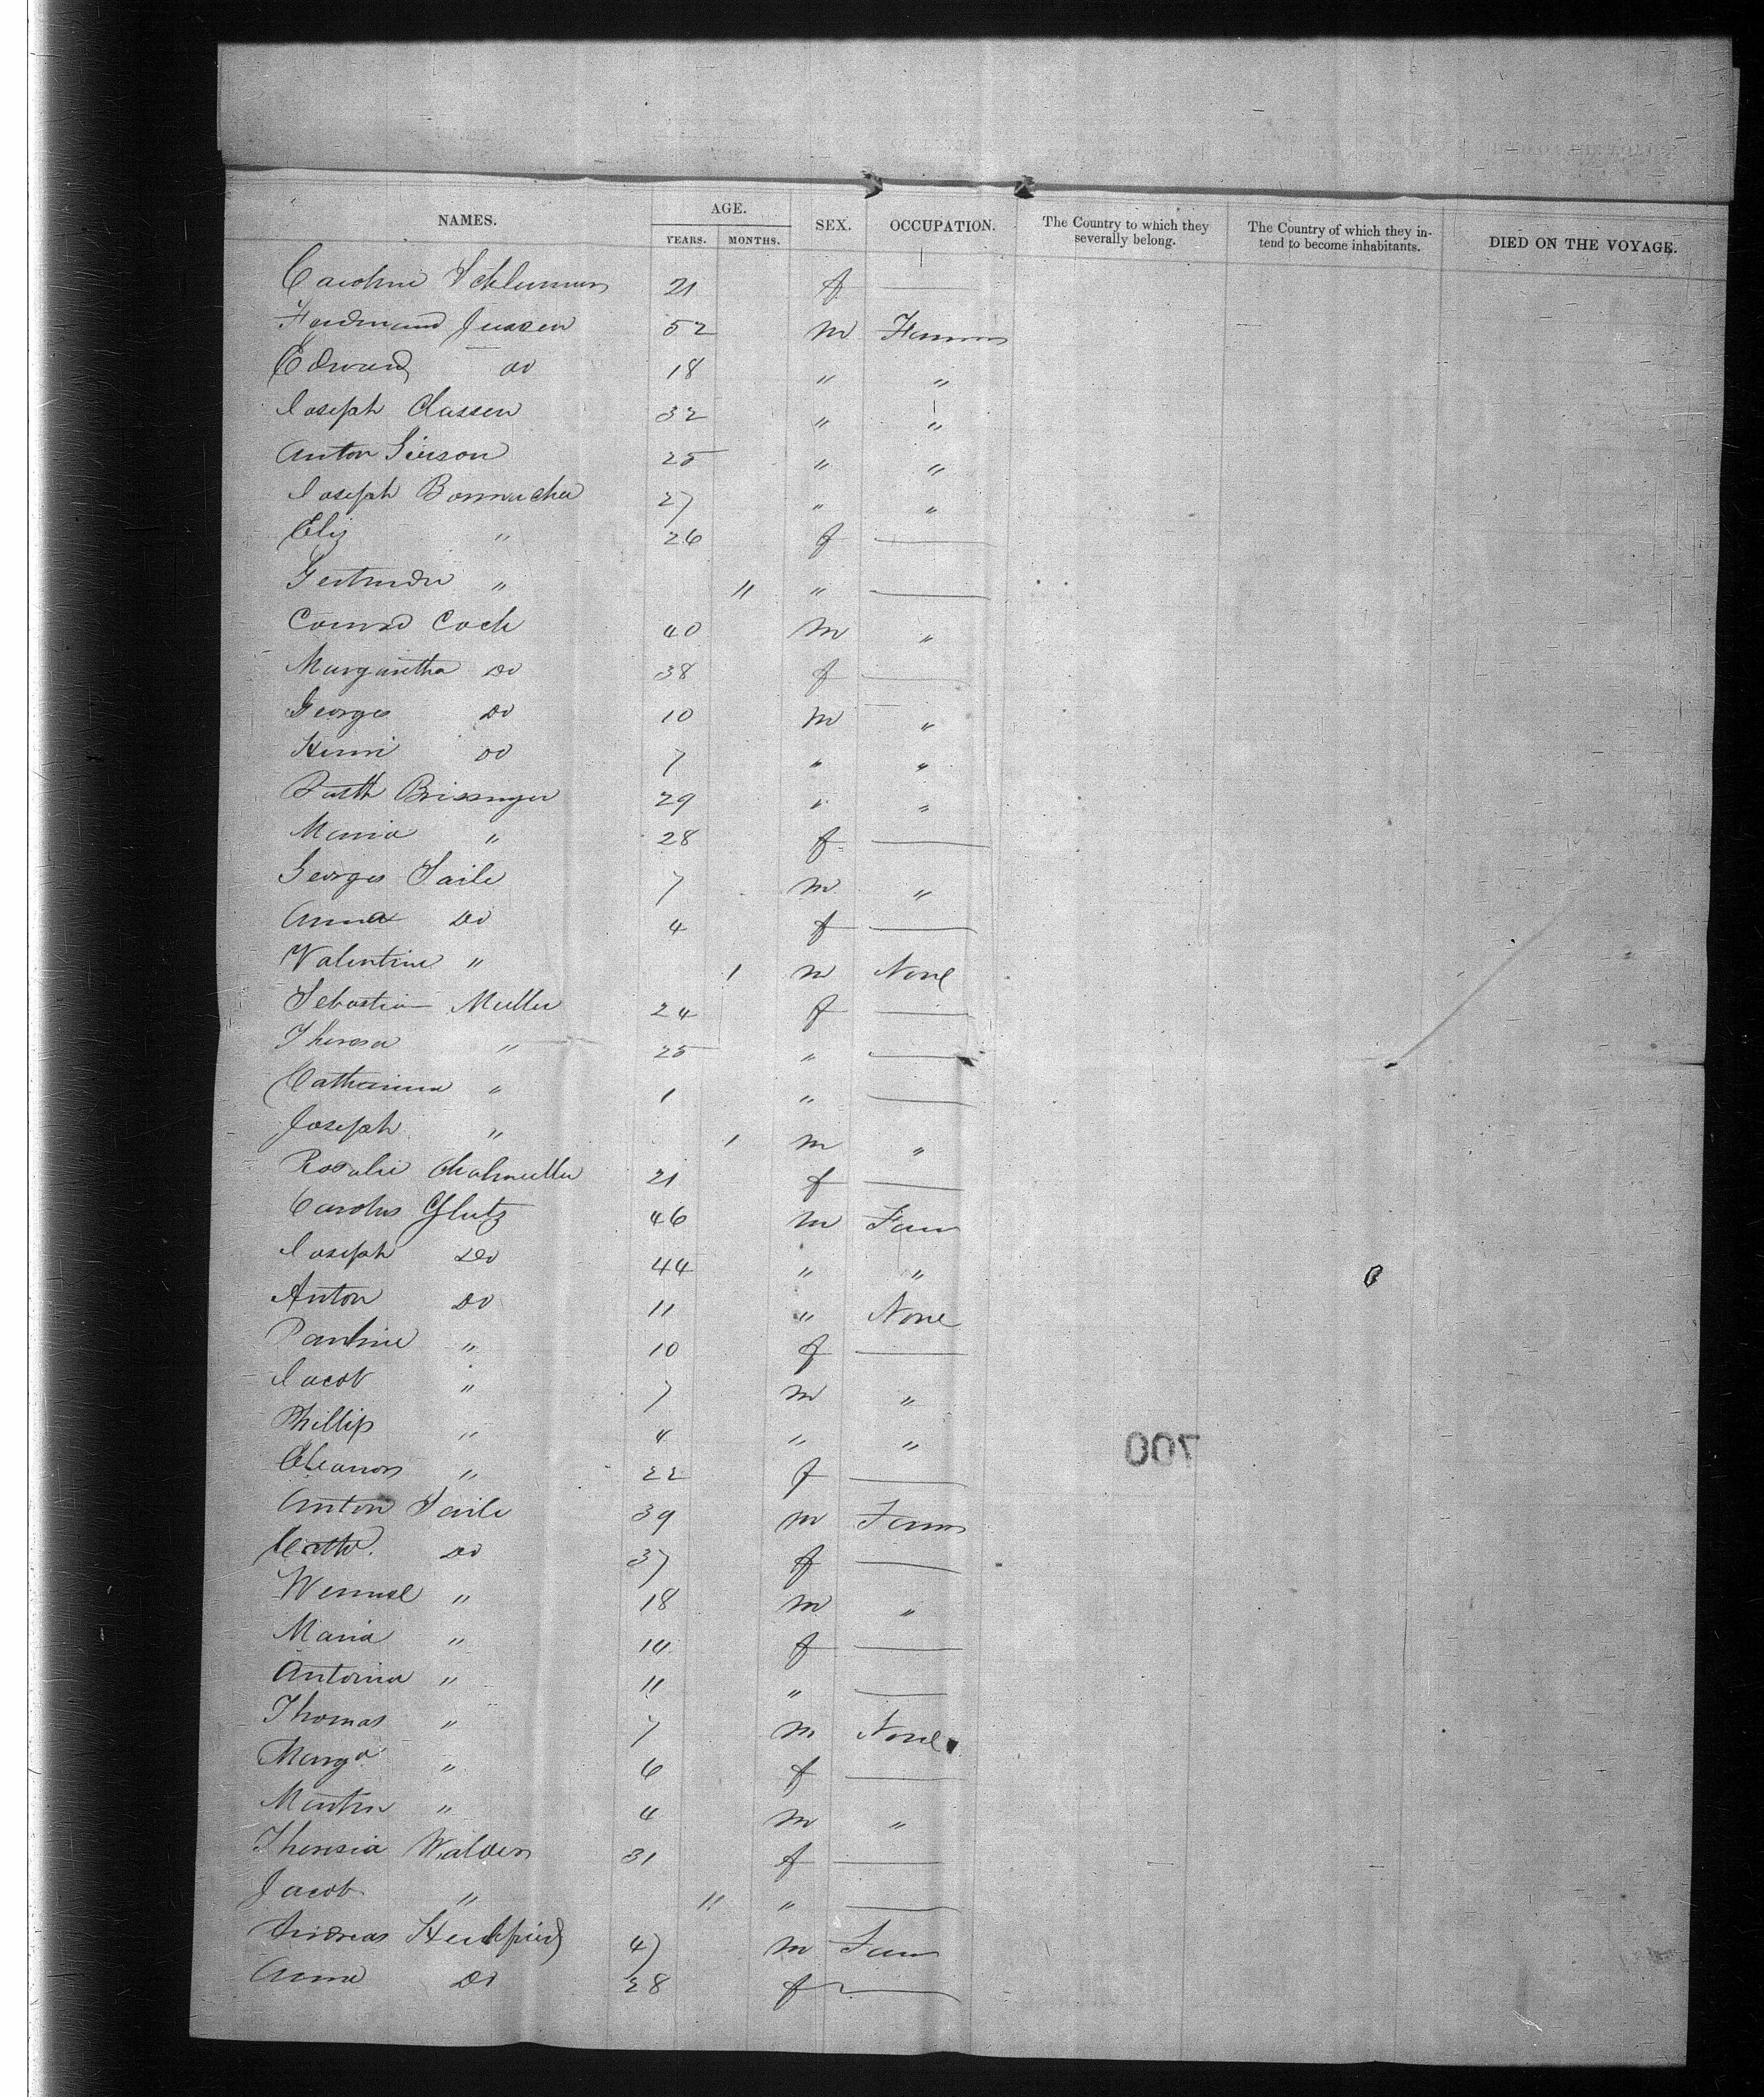 NAMES. AGE. SEX. OCCUPATION. The Country to which they severally belong. The Country of which they intend to become inhabitants. DIED ON THE VOYAGE.
YEARS. MONTHS.
Caroline 21 f —
Ferdinand Jussen 52 m Farmer
Edward do 18 " "
Joseph Classen 32 " "
Anton 25 " "
Joseph 27 " "
Eliz " 26 f —
Gertrude " 11 " —
Conrad Coch 40 m "
Margaretha Do 38 f —
Georges Do 10 m "
Henri do 7 " "
Brissinger 29 " "
Maria " 28 f —
Georges Saile 7 m "
Anna Do 4 f —
Valentine " 1 m None
Sebastian Muller 24 f —
Theresa " 25 " —
Catharina " 1 " —
Joseph " 1 m "
Rosalie 21 f —
Carolus Glutz 46 m Farm
Joseph Do 44 " "
Anton Do 11 " None
Pauline " 10 f —
Jacob " 7 m "
Phillip " 4 " "
Eleanor " 22 f —
Anton Saile 39 m Farm
Cath. Do 37 f —
" 18 m "
Maria " 14 f —
Antonia " 11 " —
Thomas " 7 m None
Marga " 6 f —
Martin " 4 m "
Theresia Walder 31 f —
Jacob " 11 " —
Andreas 47 m Farm
Anna Do 28 f —
700